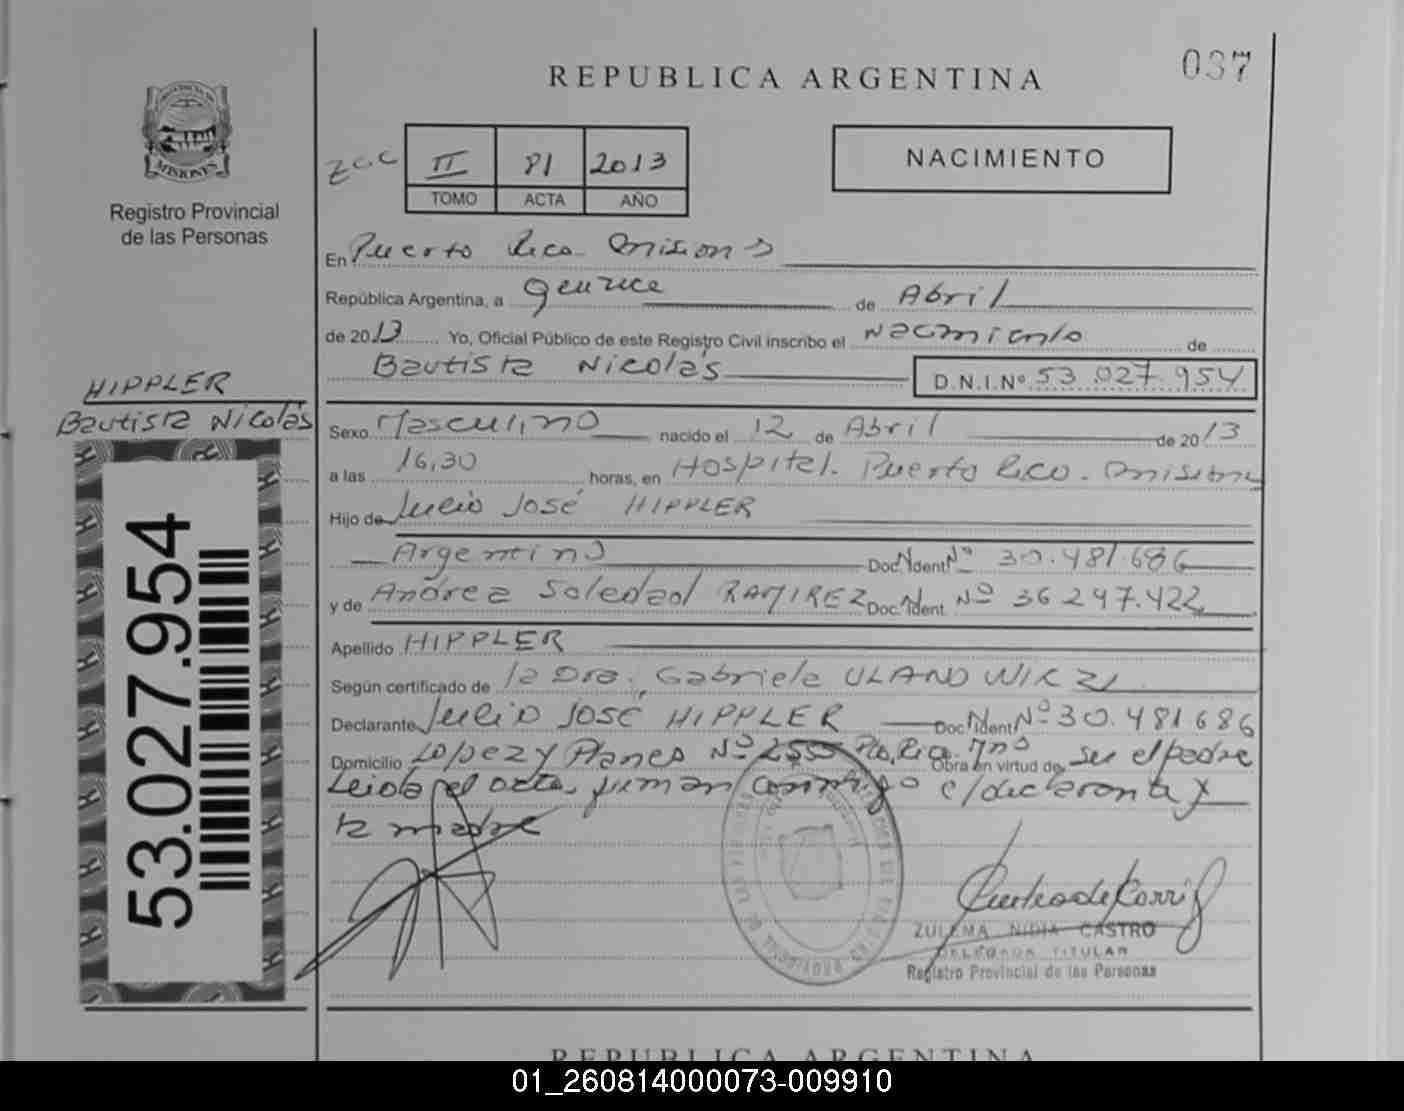 037
REPUBLICA ARGENTINA
PROVINCIA DE
MISIONES
Registro Provincial
de las Personas
II 81 2013
TOMO ACTA AÑO
NACIMIENTO
En Puerto Rico - Misiones
República Argentina, a quince de Abril
de 2013 Yo, Oficial Público de este Registro Civil inscribo el Nacimiento de
Bautista Nicolás D.N.I.Nº 53.027.954
HIPPLER
Bautista Nicolás
53.027.954
Sexo Masculino nacido el 12 de Abril de 2013
a las 16,30 horas, en Hospital. Puerto Rico - Misiones
Hijo de Julio José HIPPLER
Argentino Doc. Ident Nº 30.481.686
y de Andrea Soledad RAMIREZ Doc. Ident. Nº 36 247.422
Apellido HIPPLER
Según certificado de la Dra. Gabriela ULANOWICZ
Declarante Julio José HIPPLER Doc. Ident Nº 30.481686
Domicilio Lopez y Planes Nº Pto. Rico. Mnes Obra en virtud de ser el padre
Leida el acta, firman conmigo e/declarante y
la madre
ZULEMA NIDIA CASTRO
DELEGADA TITULAR
Registro Provincial de las Personas
REPUBLICA ARGENTINA
01_260814000073-009910